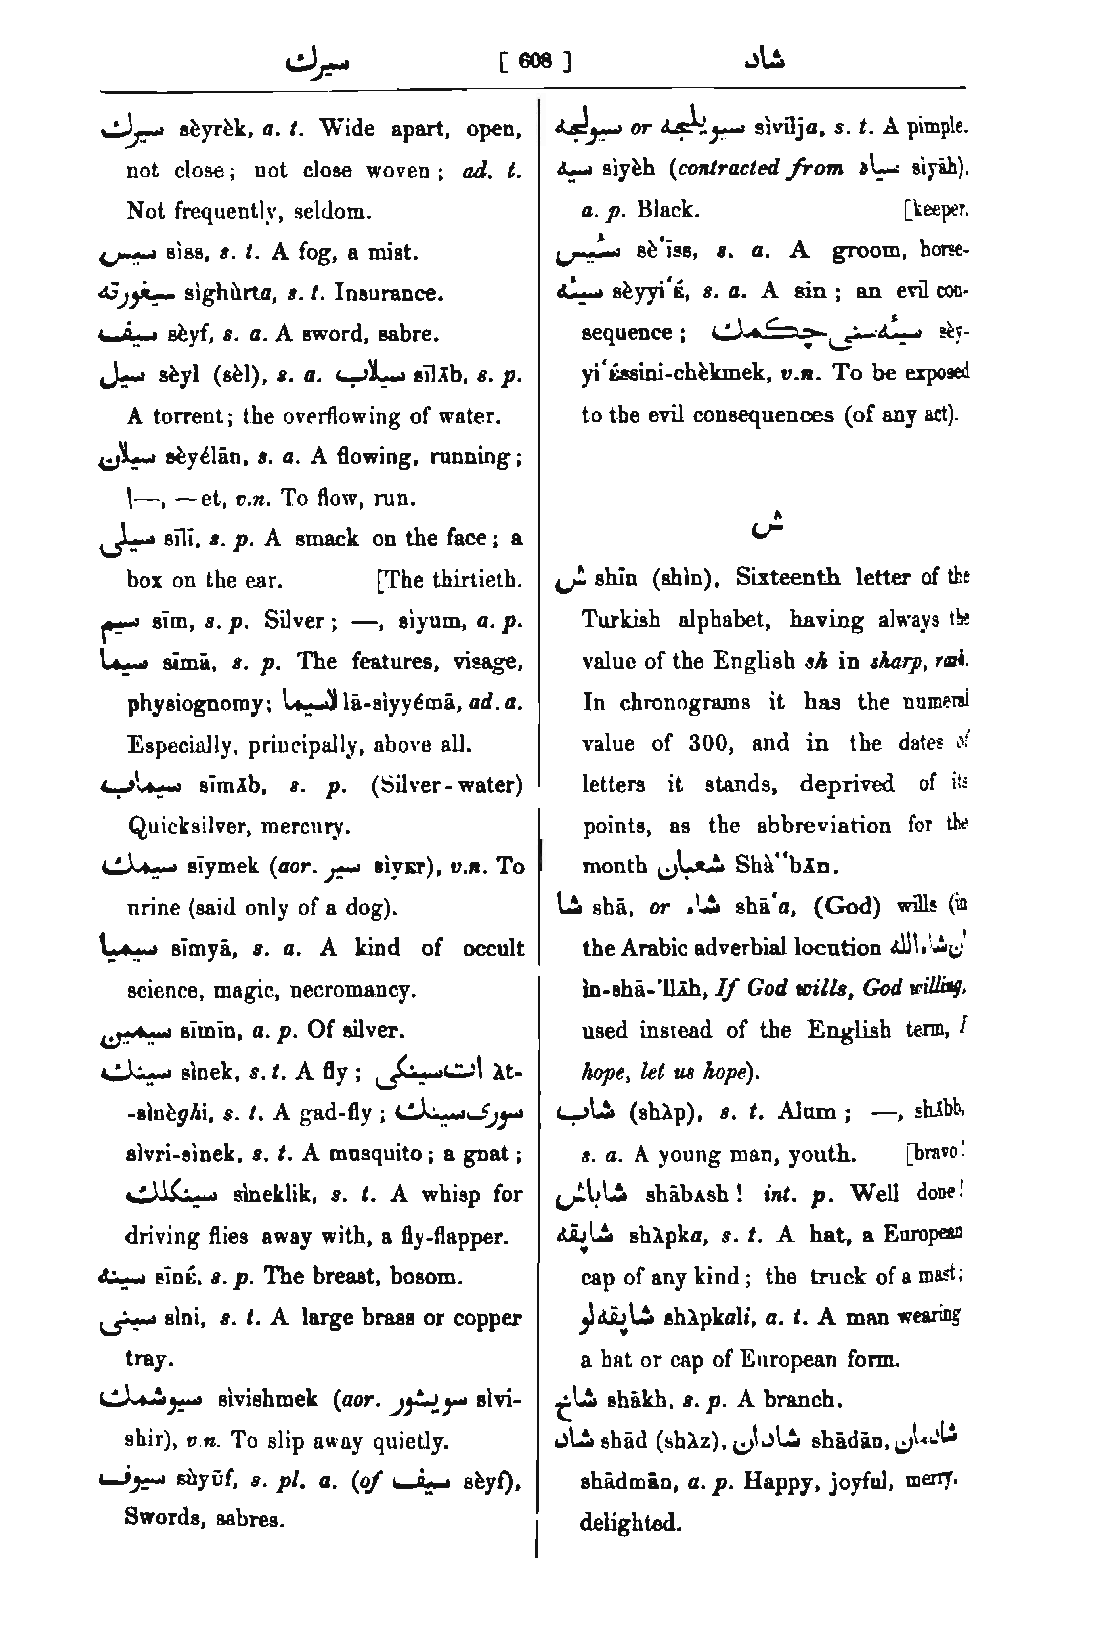 سیرك [ 608 ] شاد
سیرك sèyrèk, a. t. Wide apart, open,
not close; not close woven; ad. t.
Not frequently, seldom.
سیس sìss, s. t. A fog, a mist.
سیغورته sìghùrta, s. t. Insurance.
سیف sèyf, s. a. A sword, sabre.
سیل sèyl (sèl), s. a. سیلاب sīlᴀb, s. p.
A torrent; the overflowing of water.
سیلان sèyélān, s. a. A flowing, running;
\—, —et, v.n. To flow, run.
سیلی sīlī, s. p. A smack on the face; a
box on the ear. [The thirtieth.
سیم sīm, s. p. Silver; —, sìyum, a. p.
سیما sīmā, s. p. The features, visage,
physiognomy; لاسیما lā-sìyyémā, ad. a.
Especially, principally, above all.
سیماب sīmᴀb, s. p. (Silver-water)
Quicksilver, mercury.
سیمك sīymek (aor. سیر sìyᴇr), v.n. To
urine (said only of a dog).
سیمیا sīmyā, s. a. A kind of occult
science, magic, necromancy.
سیمین sīmīn, a. p. Of silver.
سینك sìnek, s. t. A fly; ات‌سینکی ᴀ̀t-
-sìnèghi, s. t. A gad-fly; سوری‌سینك
sìvri-sìnek, s. t. A musquito; a gnat;
سینکلك sìneklik, s. t. A whisp for
driving flies away with, a fly-flapper.
سینه sīnᴇ́, s. p. The breast, bosom.
سینی sìni, s. t. A large brass or copper
tray.
سیوشمك sìvishmek (aor. سویشور sìvi-
shir), v.n. To slip away quietly.
سیوف sùyūf, s. pl. a. (of سیف sèyf),
Swords, sabres.
سیولجه or سویلجه sìvīlja, s. t. A pimple.
سیه sìyèh (contracted from سیاه sìyāh),
a. p. Black. [keeper.
سئیس sè'īss, s. a. A groom, horse-
سیئه sèyyi'ᴇ́, s. a. A sin; an evil con-
sequence; سیئه‌سنی چکمك sèy-
yi'ᴇ́ssini-chèkmek, v.n. To be exposed
to the evil consequences (of any act).
ش
ش shīn (shìn), Sixteenth letter of the
Turkish alphabet, having always the
value of the English sh in sharp,
In chronograms it has the numeral
value of 300, and in the dates of
letters it stands, deprived of its
points, as the abbreviation for the
month شعبان Shà''bᴀn.
شا shā, or شاء shā'a, (God) wills (in
the Arabic adverbial locution ان‌شاءالله
ìn-shā-'llᴀh, If God wills, God willing,
used instead of the English term, I
hope, let us hope).
شاب (shᴀ̀p), s. t. Alum; —, shᴀbb,
s. a. A young man, youth. [bravo!
شاباش shābᴀsh! int. p. Well done!
شاپقه shᴀ̀pka, s. t. A hat, a European
cap of any kind; the truck of a mast;
شاپقه‌لو shᴀ̀pkali, a. t. A man wearing
a hat or cap of European form.
شاخ shākh, s. p. A branch.
شاد shād (shᴀ̀z), شادان shādān, شادمان
shādmān, a. p. Happy, joyful, merry,
delighted.